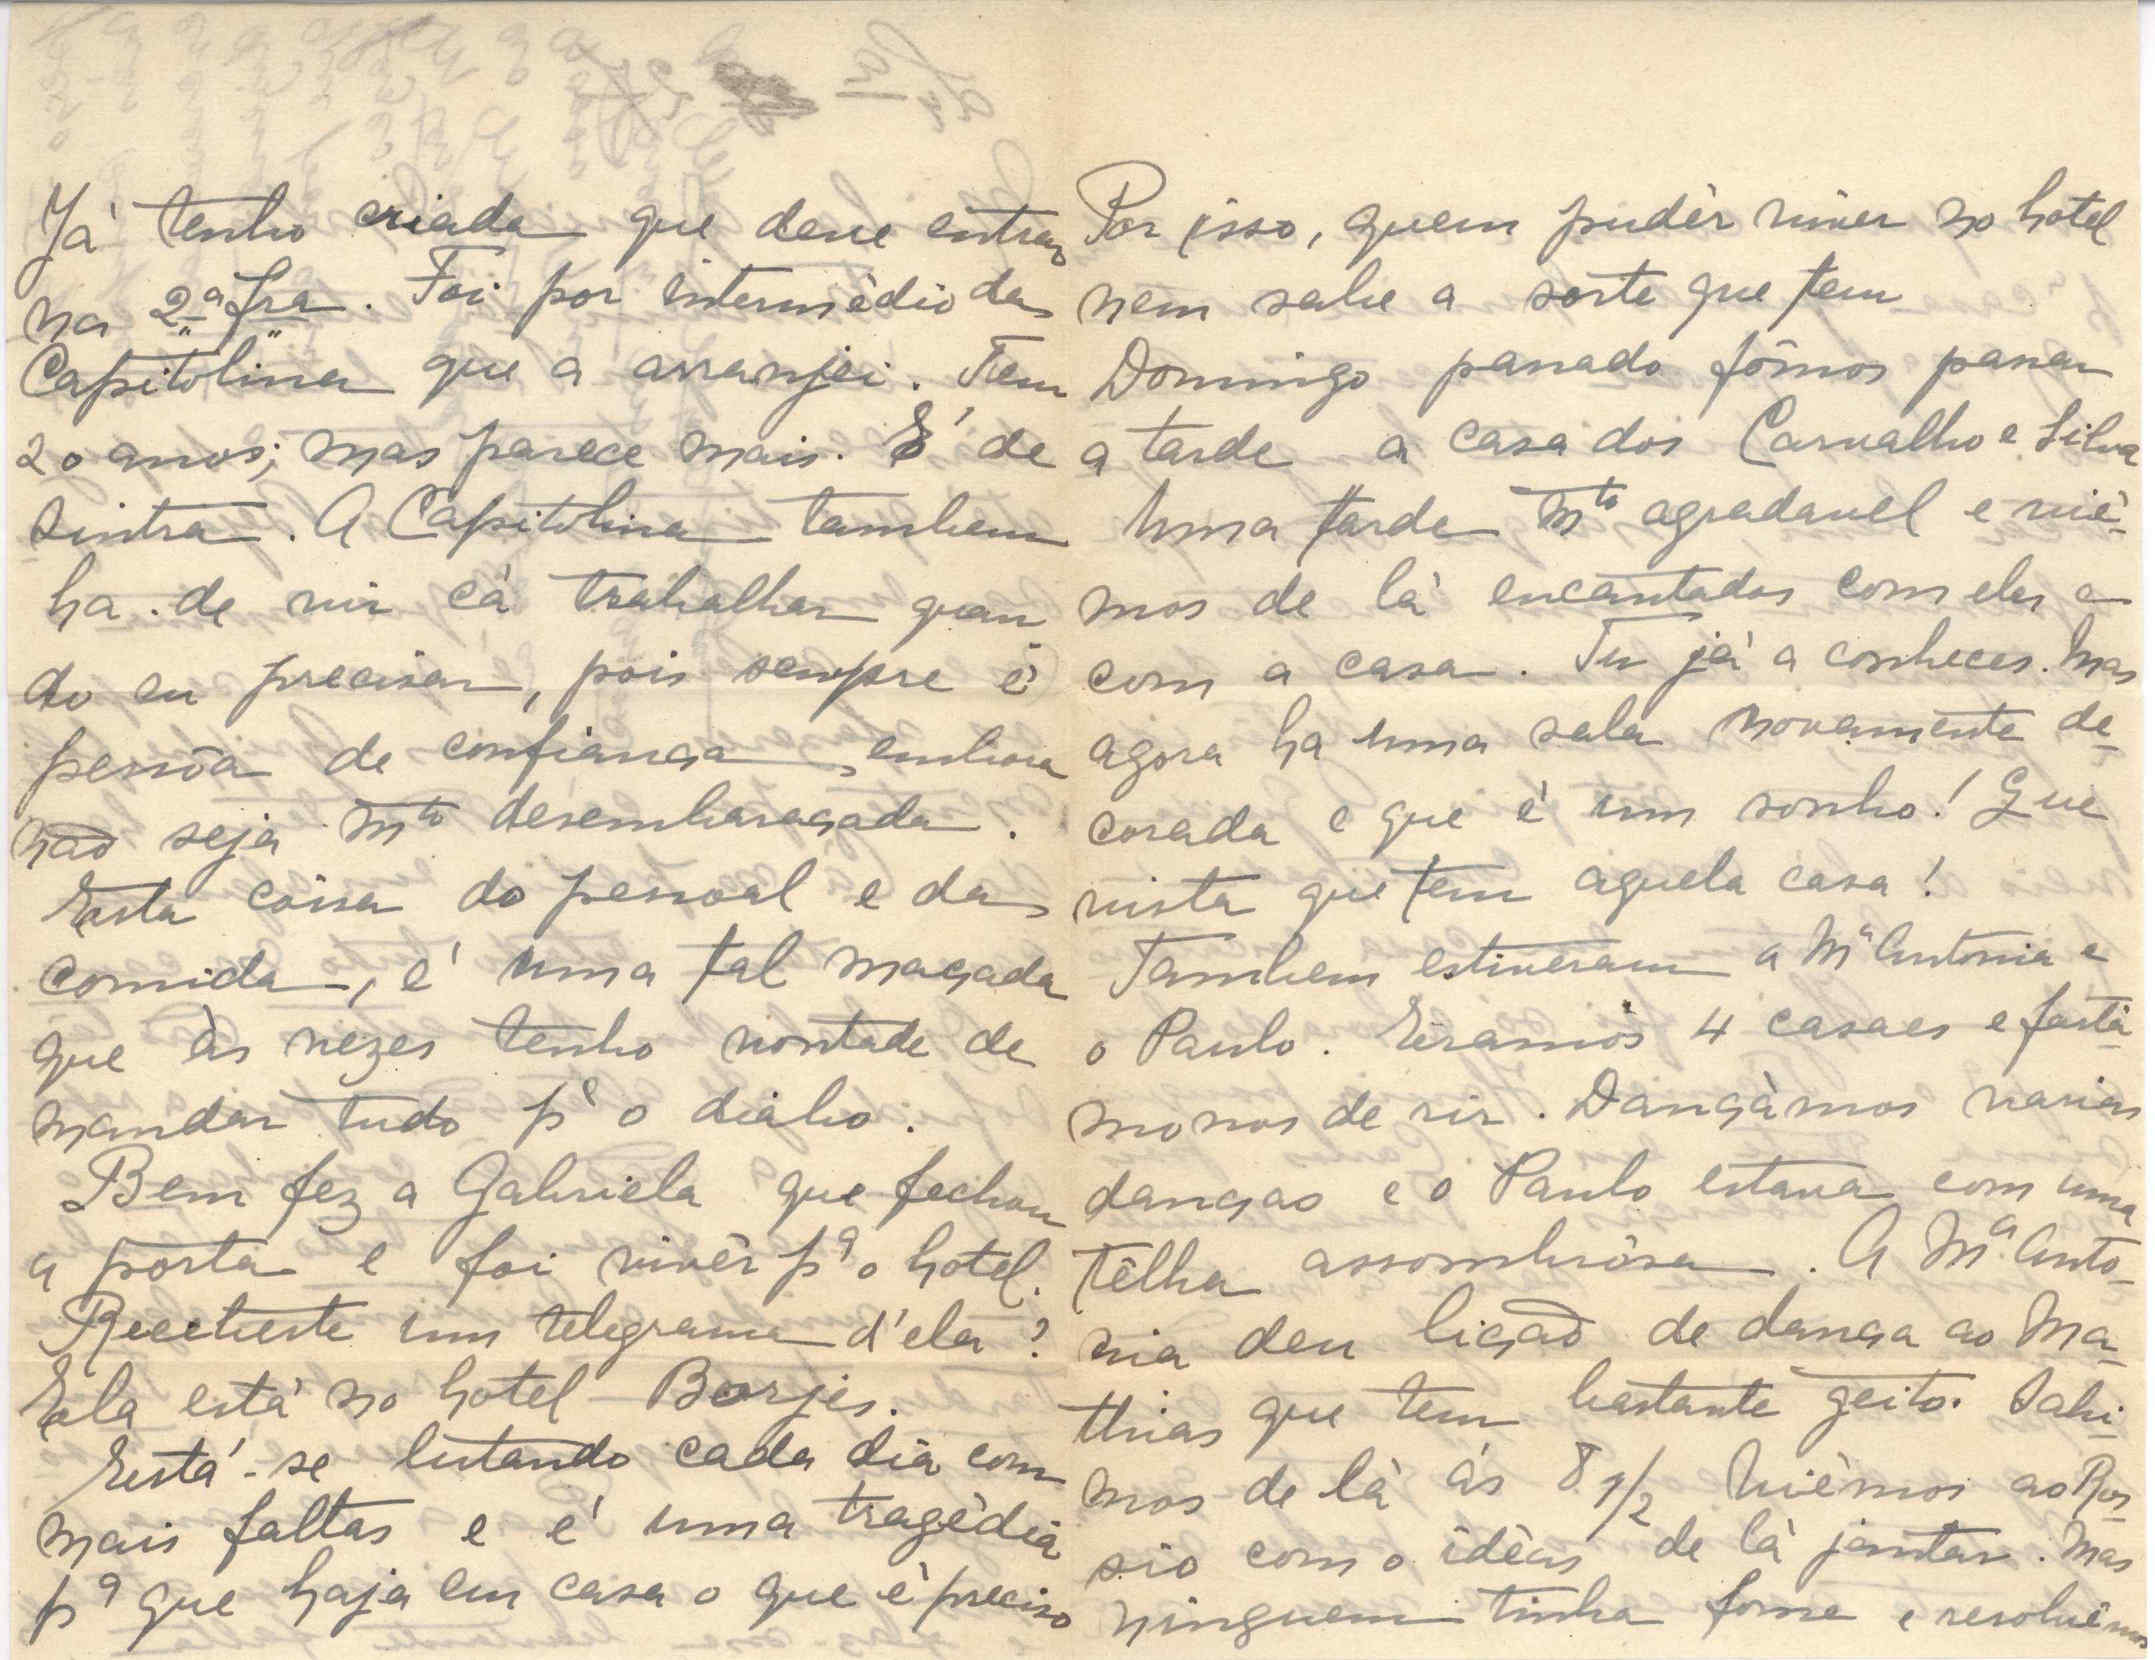 Já tenho criada que deve entrar
na 2ª fra. Foi por intermédio da
Capitolina que a arranjei. Tem
20 anos; mas parece mais. É de
Sintra. A Capitolina tambem
ha-de vir cá trabalhar quan-
do eu precisar, pois sempre é
pessôa de confiança, embora
não seja mto desembaraçada.
Esta coisa do pessoal e da
comida, é uma tal maçada
que às vezes tenho vontade de
mandar tudo pª o diabo.
Bem fez a Gabriela que fechou
a porta e foi vivêr pª o hotel.
Recebeste um telegrama d'ela?
Ela está no hotel Borjes.
Está-se lutando cada dia com
mais faltas e é uma tragédia
pª que haja em casa o que é preciso
Por isso, quem pudér viver no hotel
nem sabe a sorte que tem
Domingo passado fômos passar
a tarde a casa dos Carvalho e Silva
Uma tarde mto agradavel e vié-
mos de lá encantados com eles e
com a casa. Tu já a conheces. Mas
agora ha uma sala novamente de-
corada e que é um sonho! Que
vista que tem aquela casa!
Tambem estiveram a Mª Antonia e
o Paulo. Eramos 4 casaes e fartá-
monos de rir. Dançámos varias
danças e o Paulo estava com uma
têlha assombrósa. A Mª Anto-
nia deu lição de dança ao Ma-
thias que tem bastante geito. Sahi-
mos de lá ás 8 1/2 Viémos ao Ros-
sio com o idéas de lá jantar. Mas
ninguem tinha fome e resolvêmos